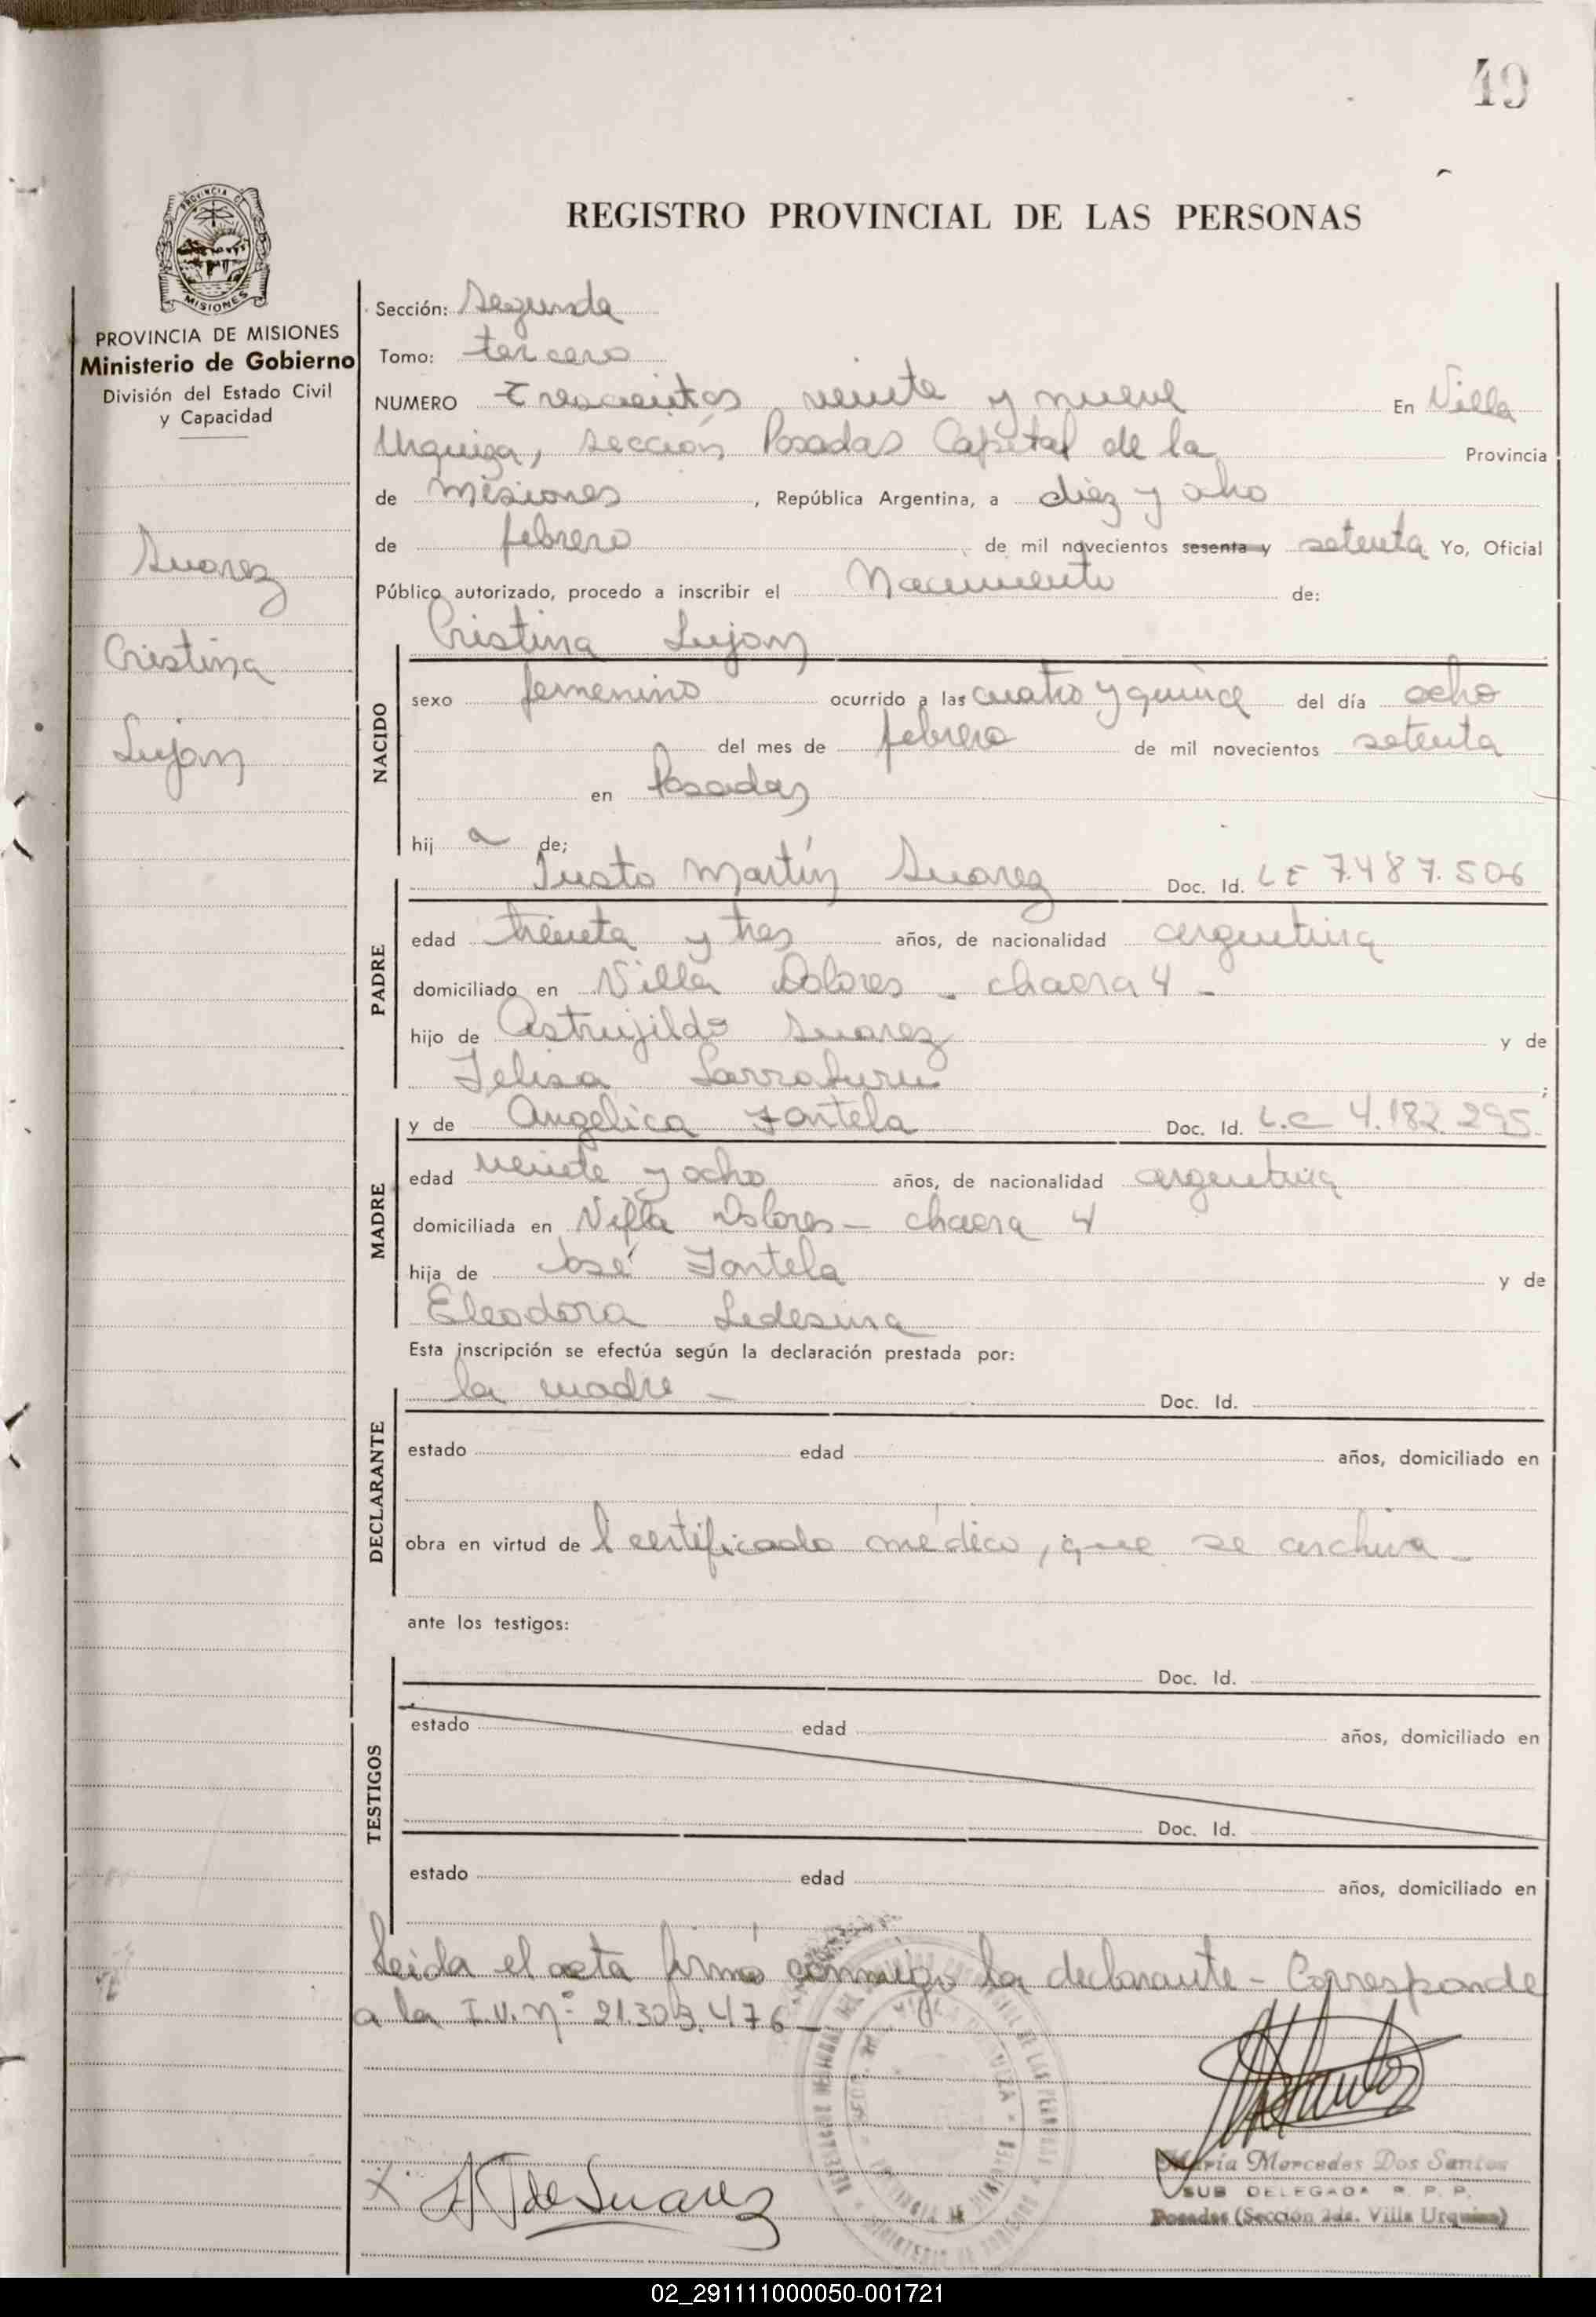 49
REGISTRO PROVINCIAL DE LAS PERSONAS
PROVINCIA DE
MISIONES
PROVINCIA DE MISIONES
Ministerio de Gobierno
División del Estado Civil
y Capacidad
Suarez
Cristina
Lujan
Sección: Segunda
Tomo: tercero
NUMERO Trescientos veinte y nueve En Villa
Urquiza, sección Posadas Capital de la Provincia
de Misiones , República Argentina, a diez y ocho
de febrero de mil novecientos sesenta y setenta Yo, Oficial
Público autorizado, procedo a inscribir el Nacimiento de:
Cristina Lujan
NACIDO
sexo femenino ocurrido a las cuatro y quince del día ocho
del mes de febrero de mil novecientos setenta
en Posadas
hij a de;
Justo Martín Suarez Doc. Id. LE 7.487.506
PADRE
edad treinta y tres años, de nacionalidad argentina
domiciliado en Villa Dolores - chacra 4 -
hijo de Astrujildo Suarez y de
Felisa Larraburu ;
y de Angélica Fontela Doc. Id. L.C 4.182.295.
MADRE
edad veinte y ocho años, de nacionalidad argentina
domiciliada en Villa Dolores - chacra 4
hija de José Fontela y de
Eleodora Ledesma
Esta inscripción se efectúa según la declaración prestada por:
la madre - Doc. Id.
DECLARANTE
estado edad años, domiciliado en
obra en virtud de l certificado médico, que se archiva -
ante los testigos:
Doc. Id.
TESTIGOS
estado edad años, domiciliado en
Doc. Id.
estado edad años, domiciliado en
Leida el acta firmó conmigo la declarante - Corresponde
a la I.U. Nº 21.303.476 -
X A F de Suarez
María Mercedes Dos Santos
SUB DELEGADA R. P. P.
Posadas (Sección 2da. Villa Urquiza)
02_291111000050-001721